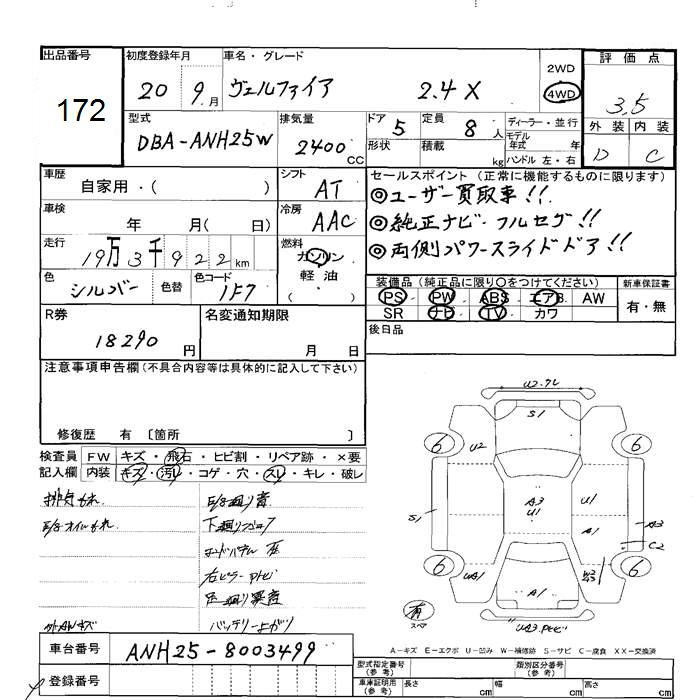 出品番号
172
初度登録年月
20 9月
車名・グレード
ヴェルファイア 2.4X
2WD
4WD
評価点
3.5
外装 内装
D C
型式
DBA-ANH25W
排気量
2400 CC
ドア 5
形状
定員 8人
積載 kg
ディーラー・並行
モデル年式 年
ハンドル 左・右
車歴
自家用・( )
シフト
AT
車検
年 月( 日)
冷房
AAC
走行
19万3千922km
燃料
ガソリン
軽油
( )
色
シルバー
色替
色コード
1F7
セールスポイント(正常に機能するものに限ります)
◎ユーザー買取車!!
◎純正ナビ・フルセグ!!
◎両側パワースライドドア!!
装備品(純正品に限り○をつけてください)
PS PW ABS エアB AW
SR ナビ TV カワ
新車保証書
有・無
後日品
R券
18290円
名変通知期限
月 日
注意事項申告欄(不具合内容等は具体的に記入して下さい)
修復歴 有 〔箇所 〕
検査員記入欄
FW キズ・飛石・ヒビ割・リペア跡・×要
内装 キズ・汚レ・コゲ・穴・スレ・キレ・破レ
排気もれ
下廻り
バッテリー上がり
車台番号
ANH25-8003499
登録番号
U2
S1
6
6
U2
A3
U1
U1
A1
S1
A3
C2
6
6
UA1
A1
有
スペア
A−キズ E−エクボ U−凹み W−補修跡 S−サビ C−腐食 XX−交換済
型式指定番号
類別区分番号
車庫証明用(参考) 長さ cm 幅 cm 高さ cm